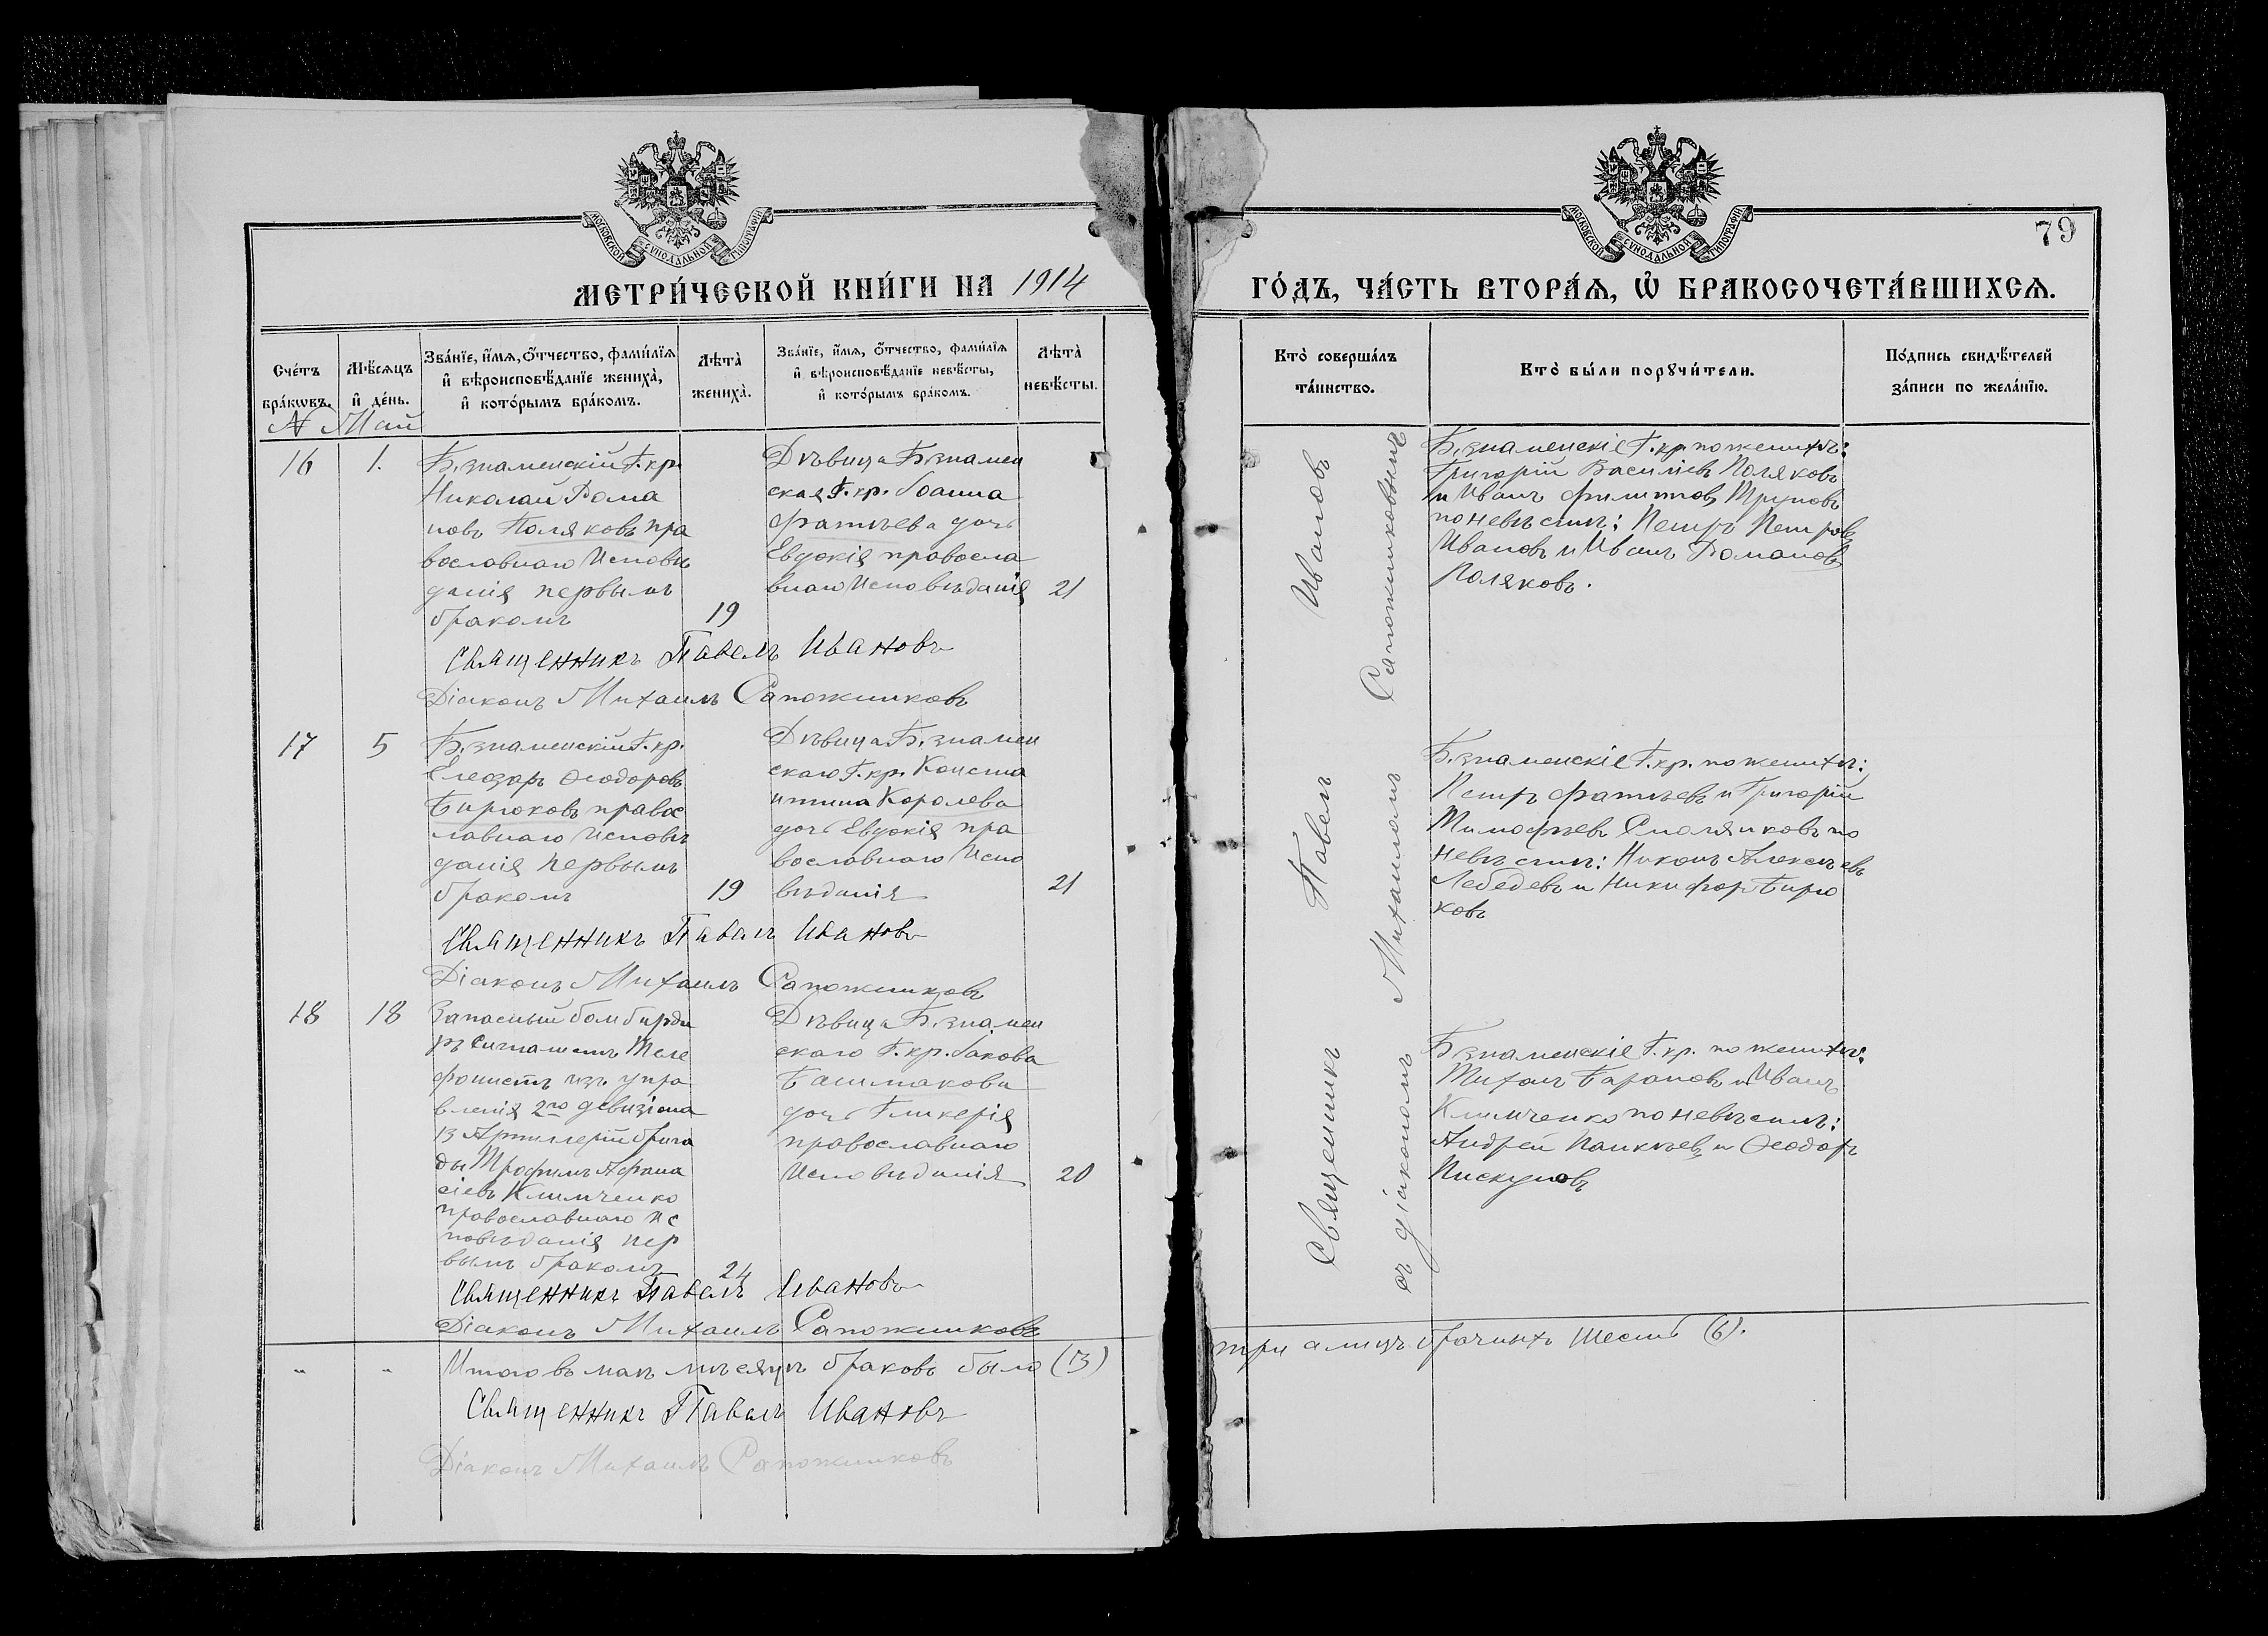 МОСКОВСКОЙ СУНОДАЛЬНОЙ ТИПОГРАФІИ
МЕТРИ́ЧЕСКОЙ КНИ́ГИ НА 1914
Сче́тъ бра́кѡвъ.
Мѣ́сѧцъ и҆ де́нь.
Зва́нїе, и҆́мѧ, ѻ҆́тчество, фами́лїѧ и҆ вѣроисповѣ́данїе женихà, и҆ кото́рымъ бра́комъ.
Лѣ́та женихà.
Зва́нїе, и҆́мѧ, ѻ҆́тчество, фами́лїѧ и҆ вѣроисповѣ́данїе невѣ́сты, и҆ кото́рымъ бра́комъ.
Лѣ́та невѣ́сты.
N Май
16
1.
Б.знаменскій Г. кр.
Николай Рома
новъ Поляковъ пра
вославнаго Исповѣ
данія первымъ
бракомъ
19
Дѣвица Б.знамен
ская Г. кр. Іоанна
Фатѣева дочь
Евдокія правосла
внаго Исповѣданія
21
Священникъ Павелъ Ивановъ
Діаконъ Михаилъ Сапожниковъ
17
5
Б.знаменскій Г. кр.
Елеозаръ Ѳеодоровъ
Бирюковъ правос
лавнаго Исповѣ
данія первымъ
бракомъ
19
Дѣвица Б.знамен
скаго Г. кр. Конста
нтина Королева
дочь Евдокія пра
вославнаго Испо
вѣданія
21
Священникъ Павелъ Ивановъ
Діаконъ Михаилъ Сапожниковъ
18
18
Запасный бомбарди
ръ Сигналистъ Теле
фонистъ изъ упра
вленія 2го девизіона
13 Артиллерій брига
ды Трофимъ Афана
сіевъ Климченко
православнаго ис
повѣданія пер
вымъ бракомъ
24
Дѣвица Б.знамен
скаго Г. кр. Іакова
Башмакова
дочь Гликерія
православнаго
Исповѣданія
20
Священникъ Павелъ Ивановъ
Діаконъ Михаилъ Сапожниковъ
" " Итого въ маѣ мѣсяцѣ браковъ было (3)
Священникъ Павелъ Ивановъ
Діаконъ Михаилъ Сапожниковъ
МОСКОВСКОЙ СУНОДАЛЬНОЙ ТИПОГРАФІИ
79
ГО́ДЪ, ЧА́СТЬ ВТОРА́Ѧ, Ѡ҆ БРАКОСОЧЕТА́ВШИХСѦ.
Кто̀ соверша́лъ та́инство.
Кто̀ бы́ли порꙋчи́тели.
По́дпись свидѣ́телей за́писи по жела́нїю.
Священникъ Павелъ Ивановъ
съ діакономъ Михаиломъ Сапожниковымъ
Б.знаменскіе Г. кр. по женихѣ:
Григорій Василіевъ Поляковъ
и Иванъ Филиповъ Труновъ
по невѣстѣ: Петръ Петровъ
Ивановъ и Иванъ Романовъ
Поляковъ.
Б.знаменскіе Г. кр. по женихѣ:
Петръ Фатѣевъ и Григорій
Тимофѣевъ Смоляниковъ по
невѣстѣ: Никонъ Алексѣевъ
Лебедевъ и Никифоръ Бирю
ковъ
Б.знаменскіе Г. кр. по женихѣ:
Тихонъ Барановъ и Иванъ
Климченко по невѣстѣ:
Андрей Панкѣевъ и Ѳеодоръ
Пискуновъ
три а лицъ брачныхъ шесть (6).